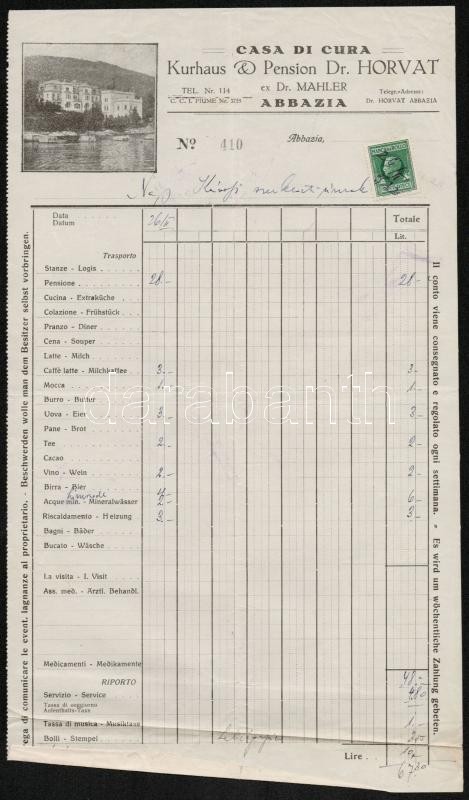 CASA DI CURA
Kurhaus & Pension Dr. HORVAT
TEL. Nr. 114
ex Dr. MAHLER
Telegr.-Adresse:
C. C. I. FIUME No. 3755
ABBAZIA
Dr. HORVAT ABBAZIA
Nº 410
Abbazia,
MARCA DA BOLLO
Data
Datum
26/II
Totale
Lit.
Trasporto
Stanze - Logis
Pensione 28.- 28.-
Cucina - Extraküche
Colazione - Frühstück
Pranzo - Diner
Cena - Souper
Latte - Milch
Caffè latte - Milchkaffee 3.- 3.-
Mocca 1.- 1.-
Burro - Butter
Uova - Eier 3.- 3.-
Pane - Brot
Tee 2.- 2.-
Cacao
Vino - Wein 2.- 2.-
Birra - Bier
Acque min. - Mineralwässer 6.-
Riscaldamento - Heizung 3.- 3.-
Bagni - Bäder
Bucato - Wäsche
La visita - I. Visit
Ass. med. - Arztl. Behandl.
Medicamenti - Medikamente
RIPORTO 48.-
Servizio - Service 4.80
Tassa di soggiorno
Aufenthalts-Taxe
Tassa di musica - Musiktaxe 1.-
Bolli - Stempel
Lire
67.80
rega di comunicare le event. lagnanze al proprietario. - Beschwerden wolle man dem Besitzer selbst vorbringen.
Il conto viene consegnato e regolato ogni settimana. " Es wird um wöchentliche Zahlung gebeten.
darabanth